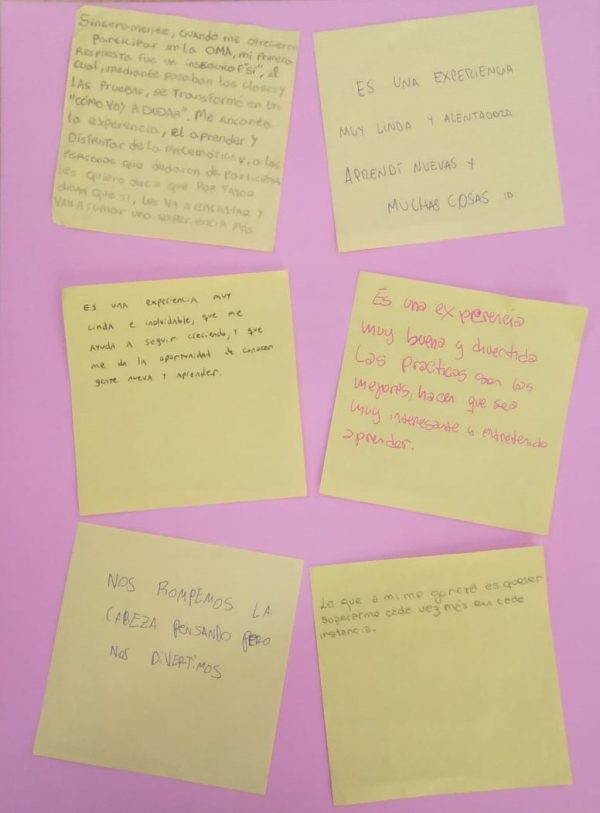 Sinceramente, cuando me ofrecieron
participar en la OMA, mi primera
respuesta fue un inseguro "sí", el
cual, mediante pasaban las clases y
las pruebas, se transformó en un
"cómo voy a dudar". Me encantó
la experiencia, el aprender y
disfrutar de la matemática y, a las
personas que dudaron de participar
les quiero decir que por favor
digan que sí, les va a encantar y
van a sumar una experiencia más
ES UNA EXPERIENCIA
MUY LINDA Y ALENTADORA
APRENDÍ NUEVAS Y
MUCHAS COSAS :D
ES UNA experiencia MUY
LINDA e inolvidable, que me
AYUDA A seguir creciendo, y que
me da la oportunidad de conocer
gente nueva y Aprender.
Es una experiencia
muy buena y divertida
Las practicas son las
mejores, hacen que sea
muy interesante y entretenido
aprender.
NOS ROMPEMOS LA
CABEZA PENSANDO PERO
NOS DIVERTIMOS
Lo que a mi me generó es querer
superarme cada vez más en cada
instancia.